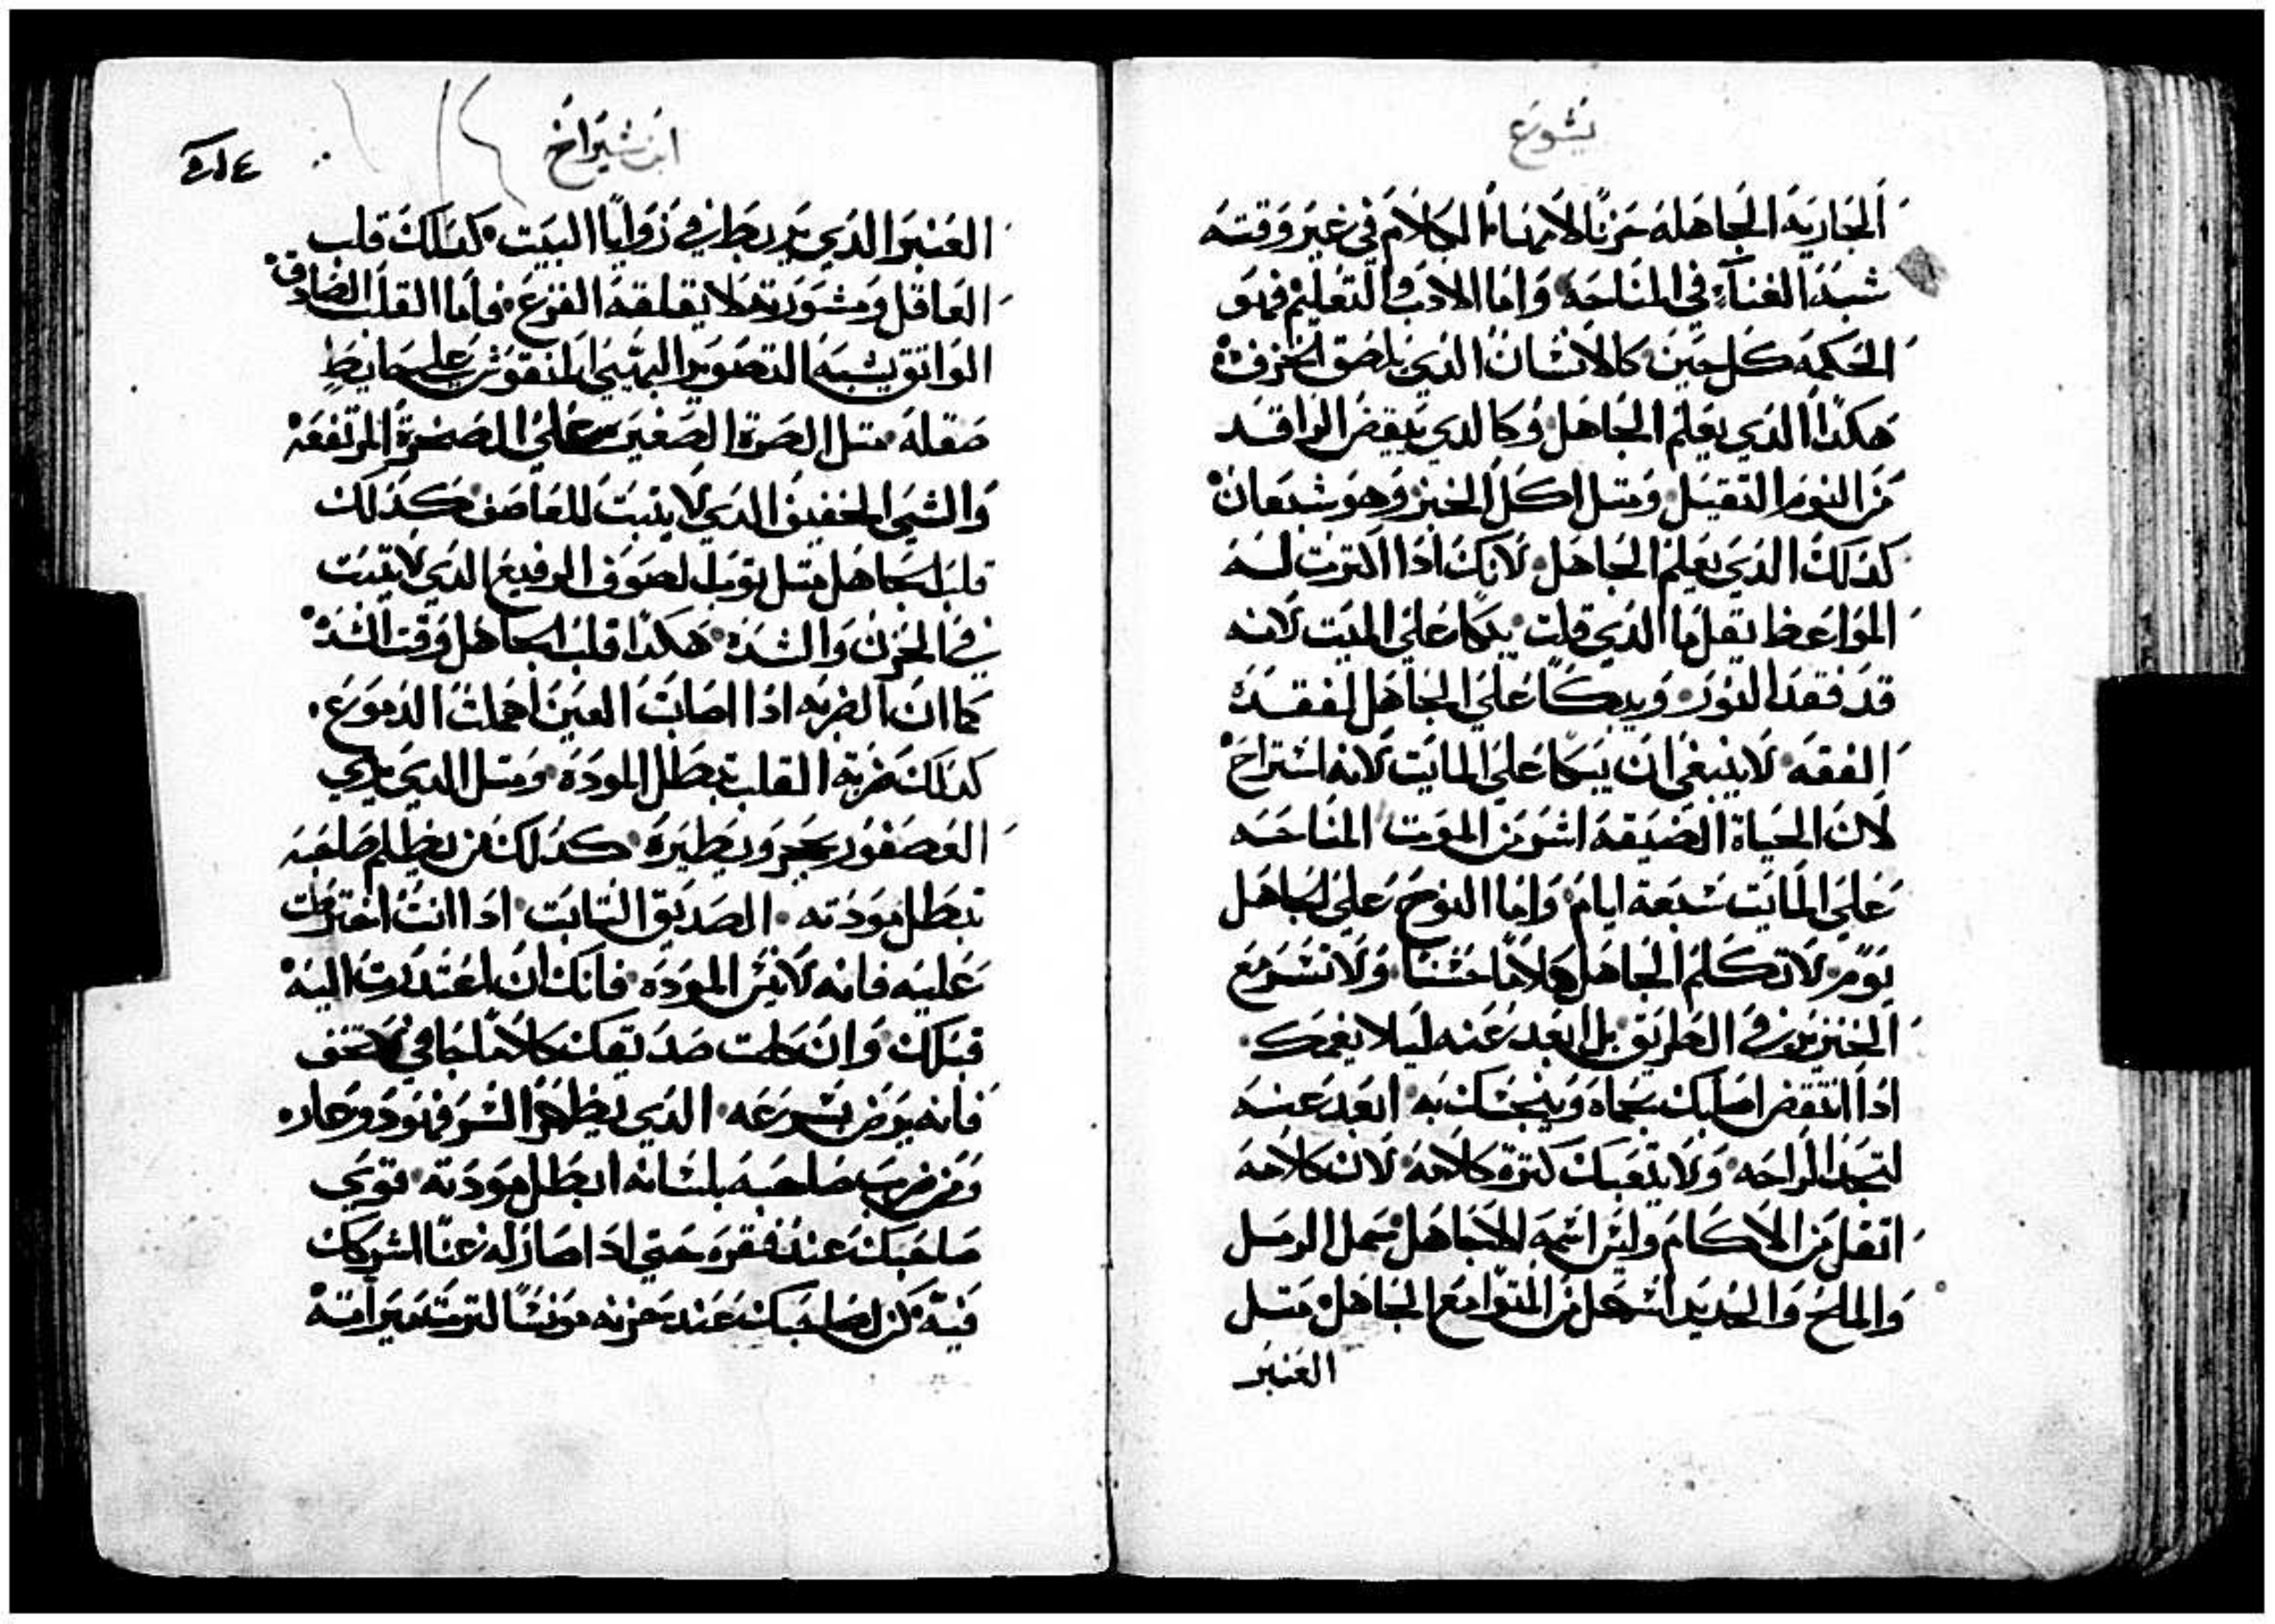 يشوع
الجاريه الجاهله حزنًا لابهاء الكلام في غير وقته
شبه الغناء في المناحه واما الادب والتعليم فهو
الحكمه كل حين كالانسان الذي يلصق الخزف
هكذا الذي يعلم الجاهل وكالدي ييقض الراقد
من النوم التقيل ومتل اكل الخبز وهو شبعان
كدلك الدي يعلم الجاهل لانك ادا اكترت له
المواعظ يقل ما الدي قلت يبكا علي الميت لانه
قد فقد النور ويبكا علي الجاهل لفقده
الفقه لا ينبغي ان يبكا علي المايت لانه استراح
لان الحياة الضيقه اشر من الموت المناحه
علي المايت سبعة ايام واما النوح علي الجاهل
يوم لا تكلم الجاهل كلامًا حسنًا ولا تسر مع
الخنزير في الطريق بل ابعد عنه ليلا يغمك
ادا انتقض اصابك بحماه وينجسك به ابعد عنه
لتجد الراحه ولا يتعبك كترة كلامه لان كلامه
اتقل من الاكام وليس اسمه الا جاهل حمل الرمل
والملح والحديد اسهل من المتوامع الجاهل متل
العنبر
ابن شيراخ
العنبر الدي يربط في زوايا البيت كدلك قلب
العاقل ومشورته لا يقلقه الفزع فاما القلب الصادق
الواتق يشبه التصوير البهي المنقوش علي حايط
صقله متل الصرة الصغيره علي الصخرة المرتفعه
والشي الخفيف الدي لا يتبت للعاصف كدلك
قلب الجاهل متل توب الصوف الرفيع الدي لا يتبت
في الحزن والشده هكدا قلب الجاهل وقت الشده
كما ان الضربه ادا اصابت العين اهملت الدموع
كدلك ضربة القلب تبطل الموده ومتل الدي يرمي
العصفور بحجر ويطيره كدلك من يظلم صاحبه
تبطل مودته الصديق التابت ادا انت اخترمت
عليه فانه لا ينس الموده فانك ان اعتدرت اليه
قبلك وان كلمت صديقك كلامًا جافي لا تخف
فانه يرض بسرعه الدي يظهر السر فهو دو عار
ومن ضرب صاحبه بلسانه ابطل مودته قوي
صاحبك عند فقره حتي ادا صار له غنا اشركك
فيه كن لصاحبك عند حزنه مونسًا لترت ميراته